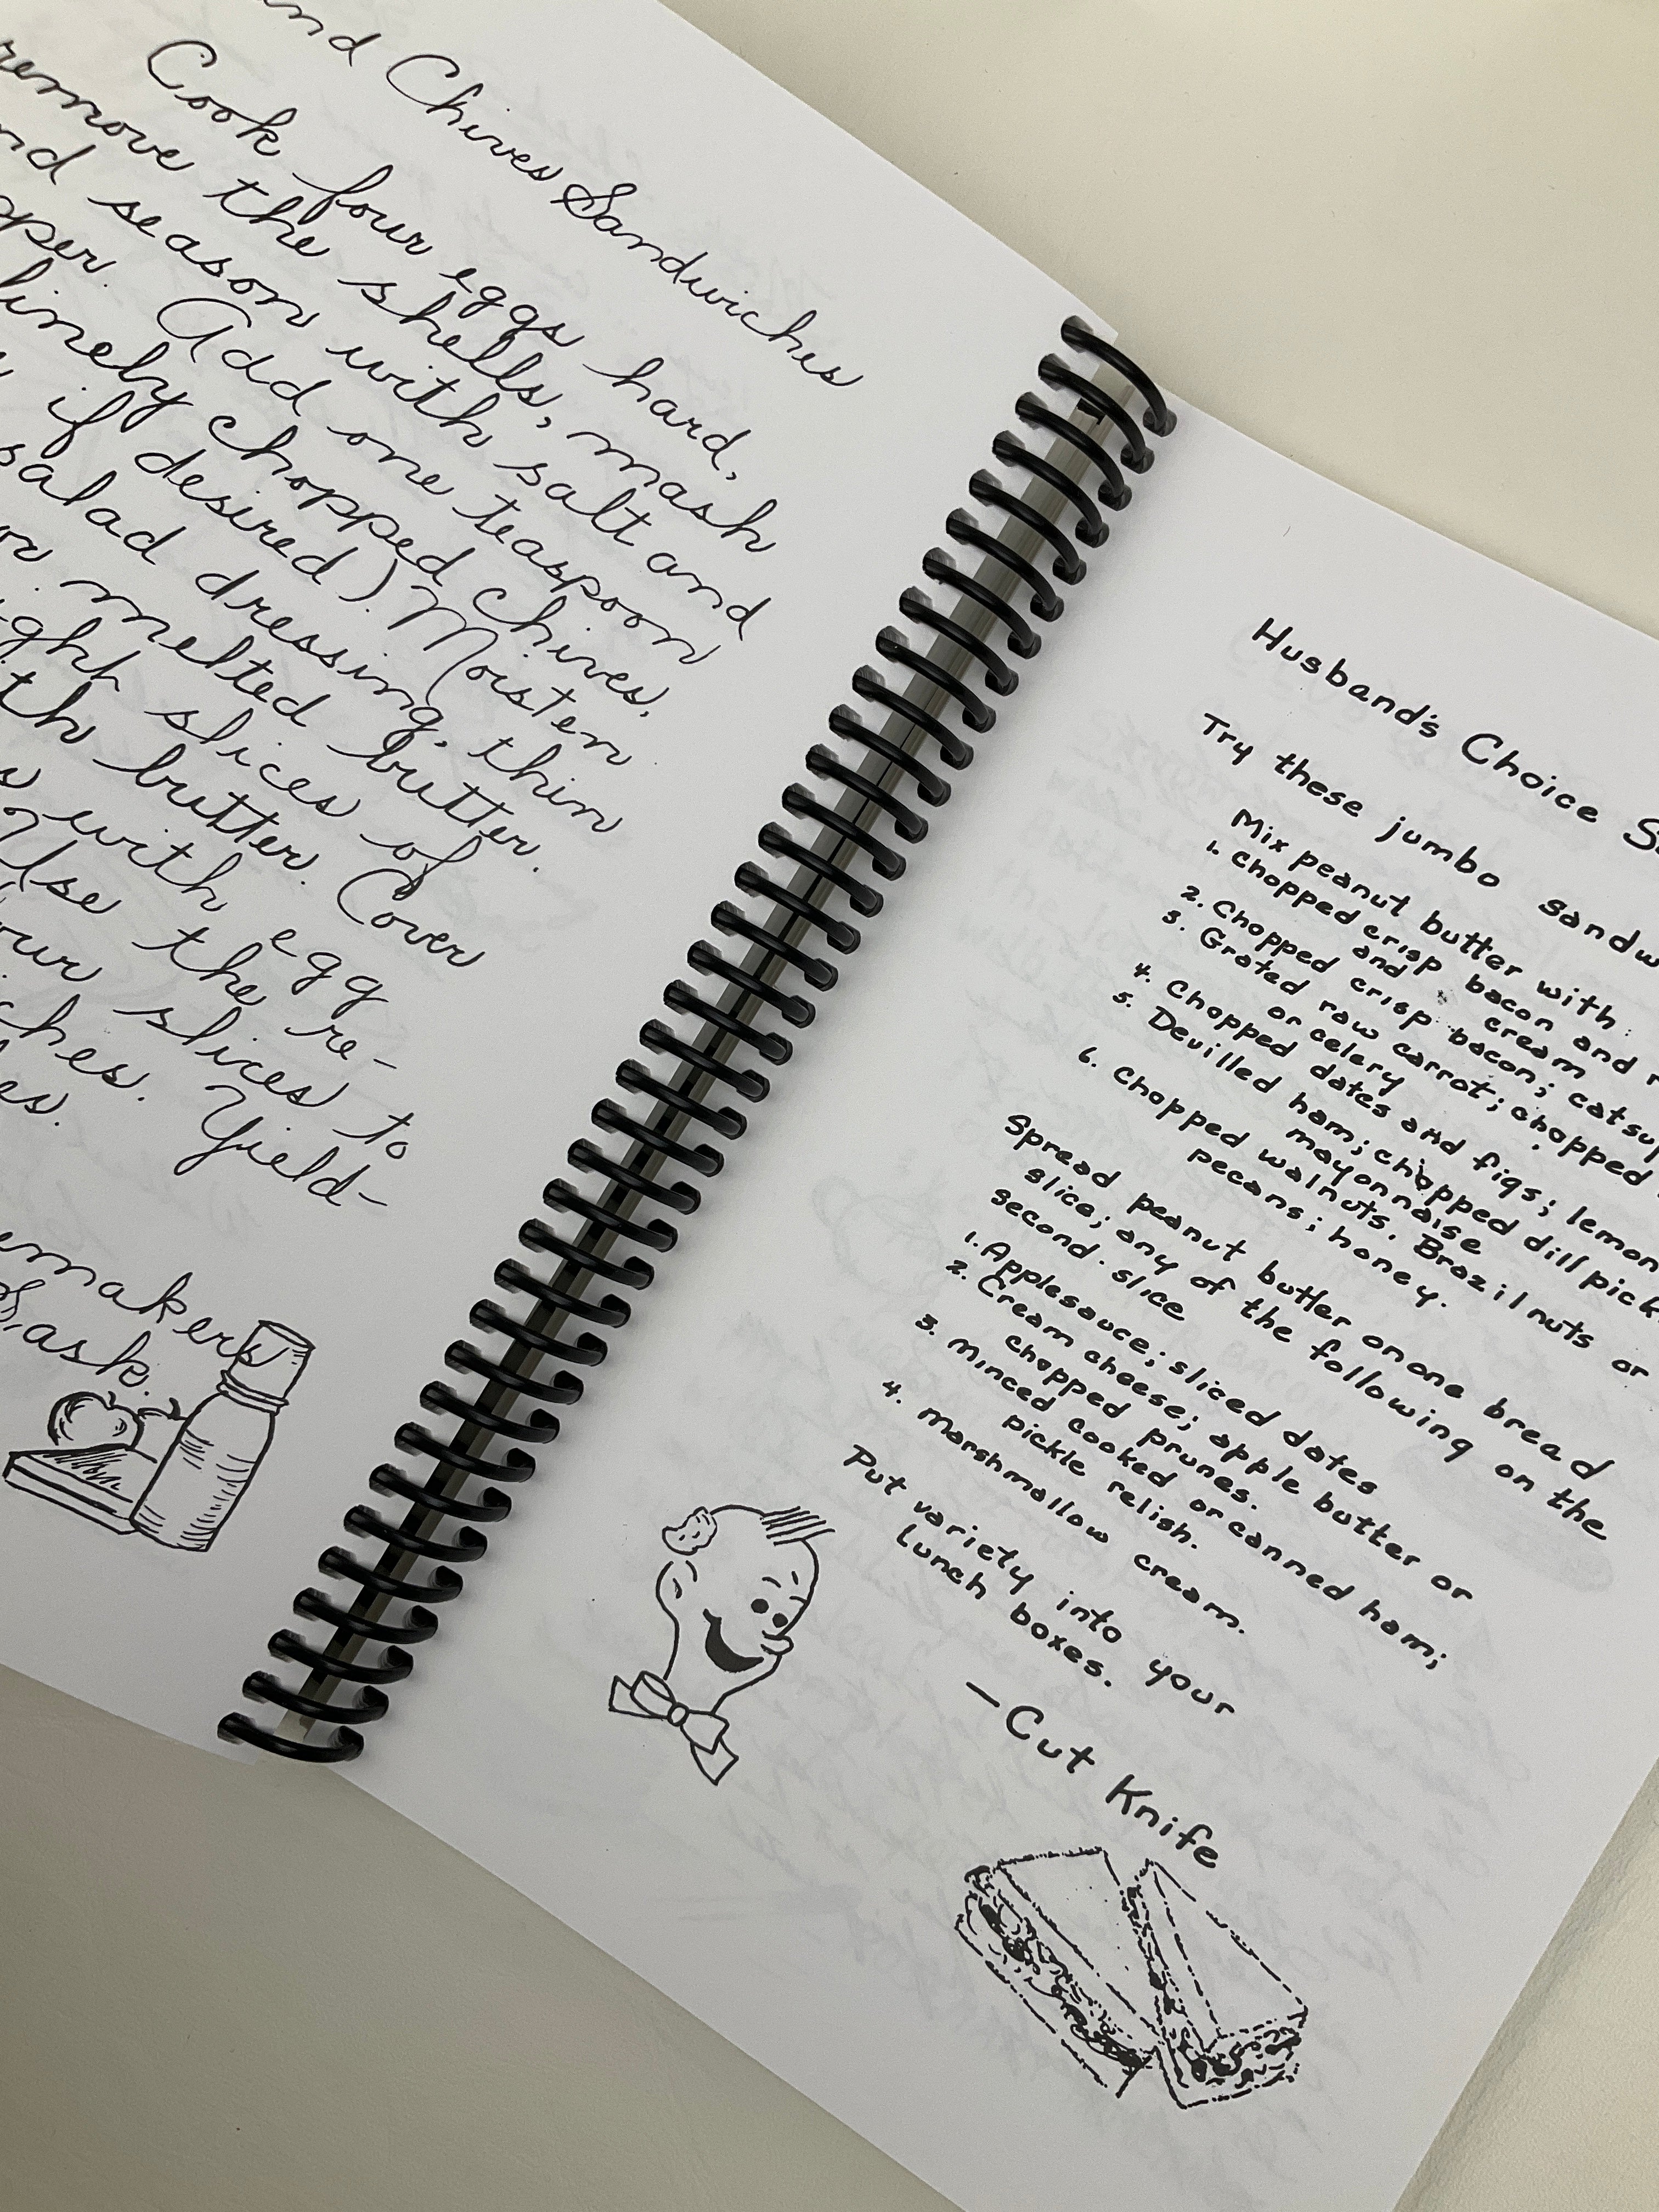 nd Chives Sandwiches
Cook four eggs hard,
remove the shells, mash
nd season with salt and
pper. Add one teaspoon
finely chopped chives,
if desired). Moisten
salad dressing, thin
or melted butter.
ght slices of
th butter. Cover
with egg
Use the re-
our slices to
ches. Yield-
es.
emakers
ask.
Husband's Choice S
Try these jumbo sandw
Mix peanut butter with:
1. Chopped crisp bacon and
and cream
2. Chopped crisp bacon; catsup
3. Grated raw carrot; chopped
or celery
4. Chopped dates and figs; lemon
5. Devilled ham; chopped dill pick
mayonnaise
6. Chopped walnuts. Brazil nuts or
pecans; honey.
Spread peanut butter on one bread
slice; any of the following on the
second. slice
1. Applesauce; sliced dates
2. Cream cheese; apple butter or
chopped prunes.
3. Minced cooked or canned ham;
pickle relish.
4. Marshmallow cream.
Put variety into your
lunch boxes.
—Cut Knife